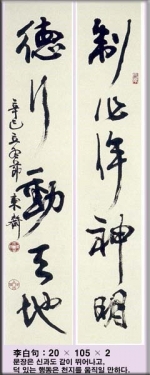 制作侔神明
德行動天地
辛巳立春節 東齋
李白句 : 20 × 105 × 2
문장은 신과도 같이 뛰어나고,
덕 있는 행동은 천지를 움직일 만하다.